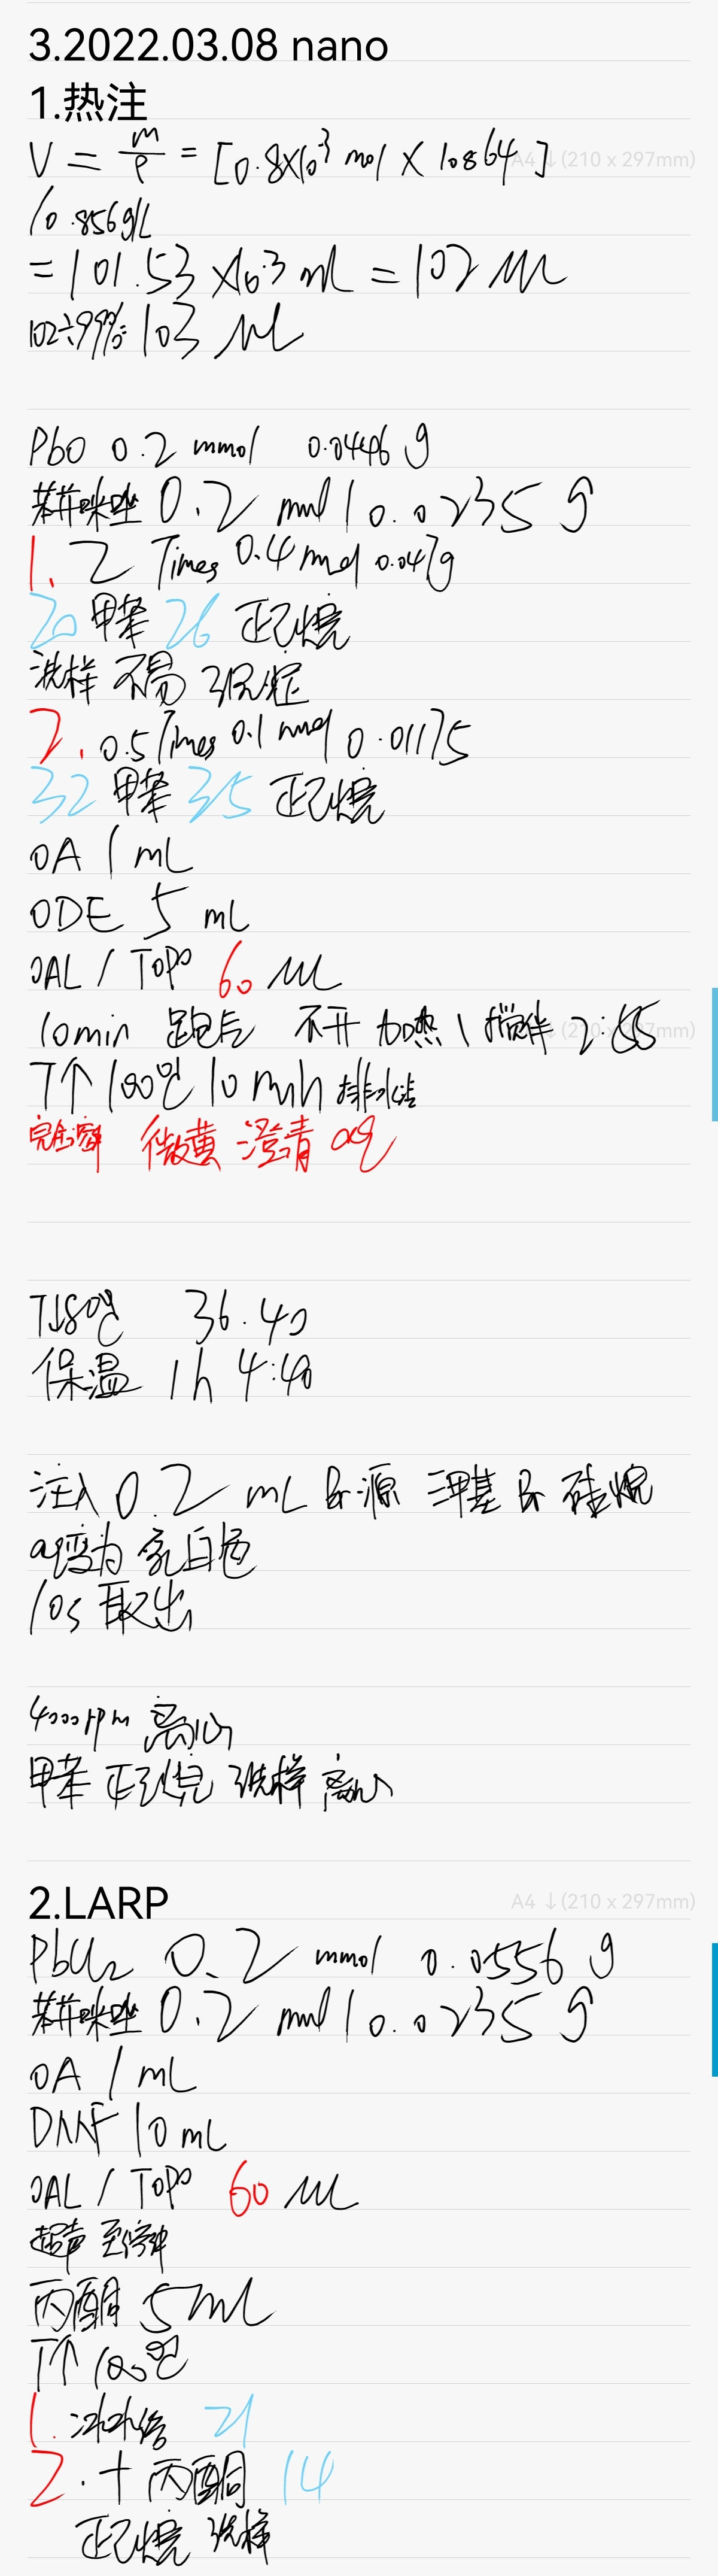 3.2022.03.08 nano
1.热注
V = m/ρ = [0.8×10⁻³ mol × 108.64]
A4 ↓ (210 x 297mm)
/0.856g/L
= 101.53 × 10⁻³ mL = 102 μL
102÷99%= 103 μL
PbO 0.2 mmol 0.0446 g
苯并咪唑 0.2 mmol 0.0235 g
1. 2 Times 0.4 mmol 0.047g
20 甲苯 26 正己烷
洗样 不易 沉淀
2. 0.5 Times 0.1 mmol 0.01175
32 甲苯 35 正己烷
OA 1 mL
ODE 5 mL
OAL / TOPO 60 μL
10min 跑气 不开 加热 \ 搅拌 2:55
T↑ 100℃ 10 min 排水
完全溶解 微黄 澄清 aq
T↓80℃ 36.40
保温 1h 4:40
注入 0.2 mL Br源 三甲基 Br 硅烷
aq变为 乳白色
10s 取出
4000rpm 离心
甲苯 正己烷 洗样 离心
2.LARP
A4 ↓ (210 x 297mm)
PbCl₂ 0.2 mmol 0.0556 g
苯并咪唑 0.2 mmol 0.0235 g
OA 1 mL
DMF 10 mL
OAL / TOPO 60 μL
超声 至溶解
丙酮 5mL
T↑ 100℃
1. 冰水浴 21
2. + 丙酮 14
正己烷 洗样